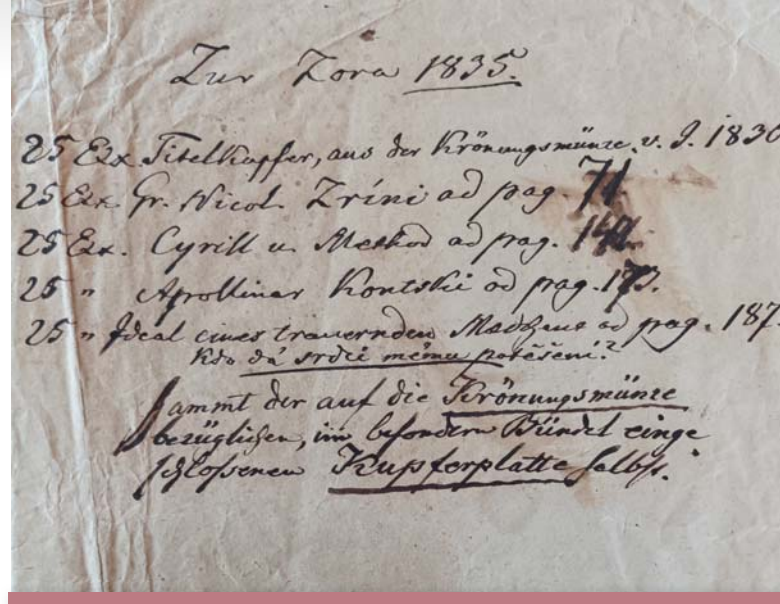 Zur Zora 1835.
25 Ex. Titelkupfer, aus der Krönungsmünze v. J. 1836
25 Ex. Gr. Nicol. Zríni ad pag. 71
25 Ex. Cyrill u. Method ad pag.
25 " Apollinar Kontski ad pag. 173.
25 " Ideal eines trauernden Mädchens ad pag. 187
Kdo dá srdci mému potěšení?
sammt der auf die Krönungsmünze
bezüglichen, im besondern Bündel einge
schlossenen Kupferplatte selbst.